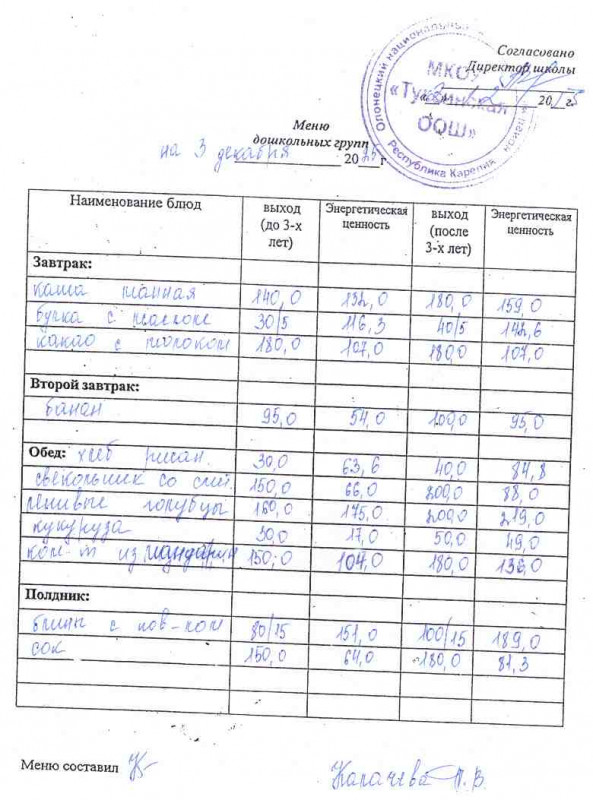 Согласовано
Директор школы
20 г.
Олонецкий национальный
МКОУ
«Туксинская
ООШ»
Республика Карелия
Меню
дошкольных групп
на 3 декабря 2025 г
Наименование блюд выход (до 3-х лет) Энергетическая ценность выход (после 3-х лет) Энергетическая ценность
Завтрак:
каша манная 140,0 132,0 180,0 159,0
булка с маслом 30/5 116,3 40/5 142,6
какао с молоком 180,0 107,0 180,0 107,0
Второй завтрак:
банан 95,0 54,0 100,0 95,0
Обед: хлеб ржан. 30,0 63,6 40,0 84,8
свекольник со смет. 150,0 66,0 200,0 88,0
ленивые голубцы 160,0 175,0 200,0 219,0
кукуруза 30,0 17,0 50,0 49,0
ком-т из мандарин 150,0 104,0 180,0 136,0
Полдник:
блины с пов-лом 80/15 151,0 100/15 189,0
сок 150,0 64,0 180,0 81,3
Меню составил Карачева